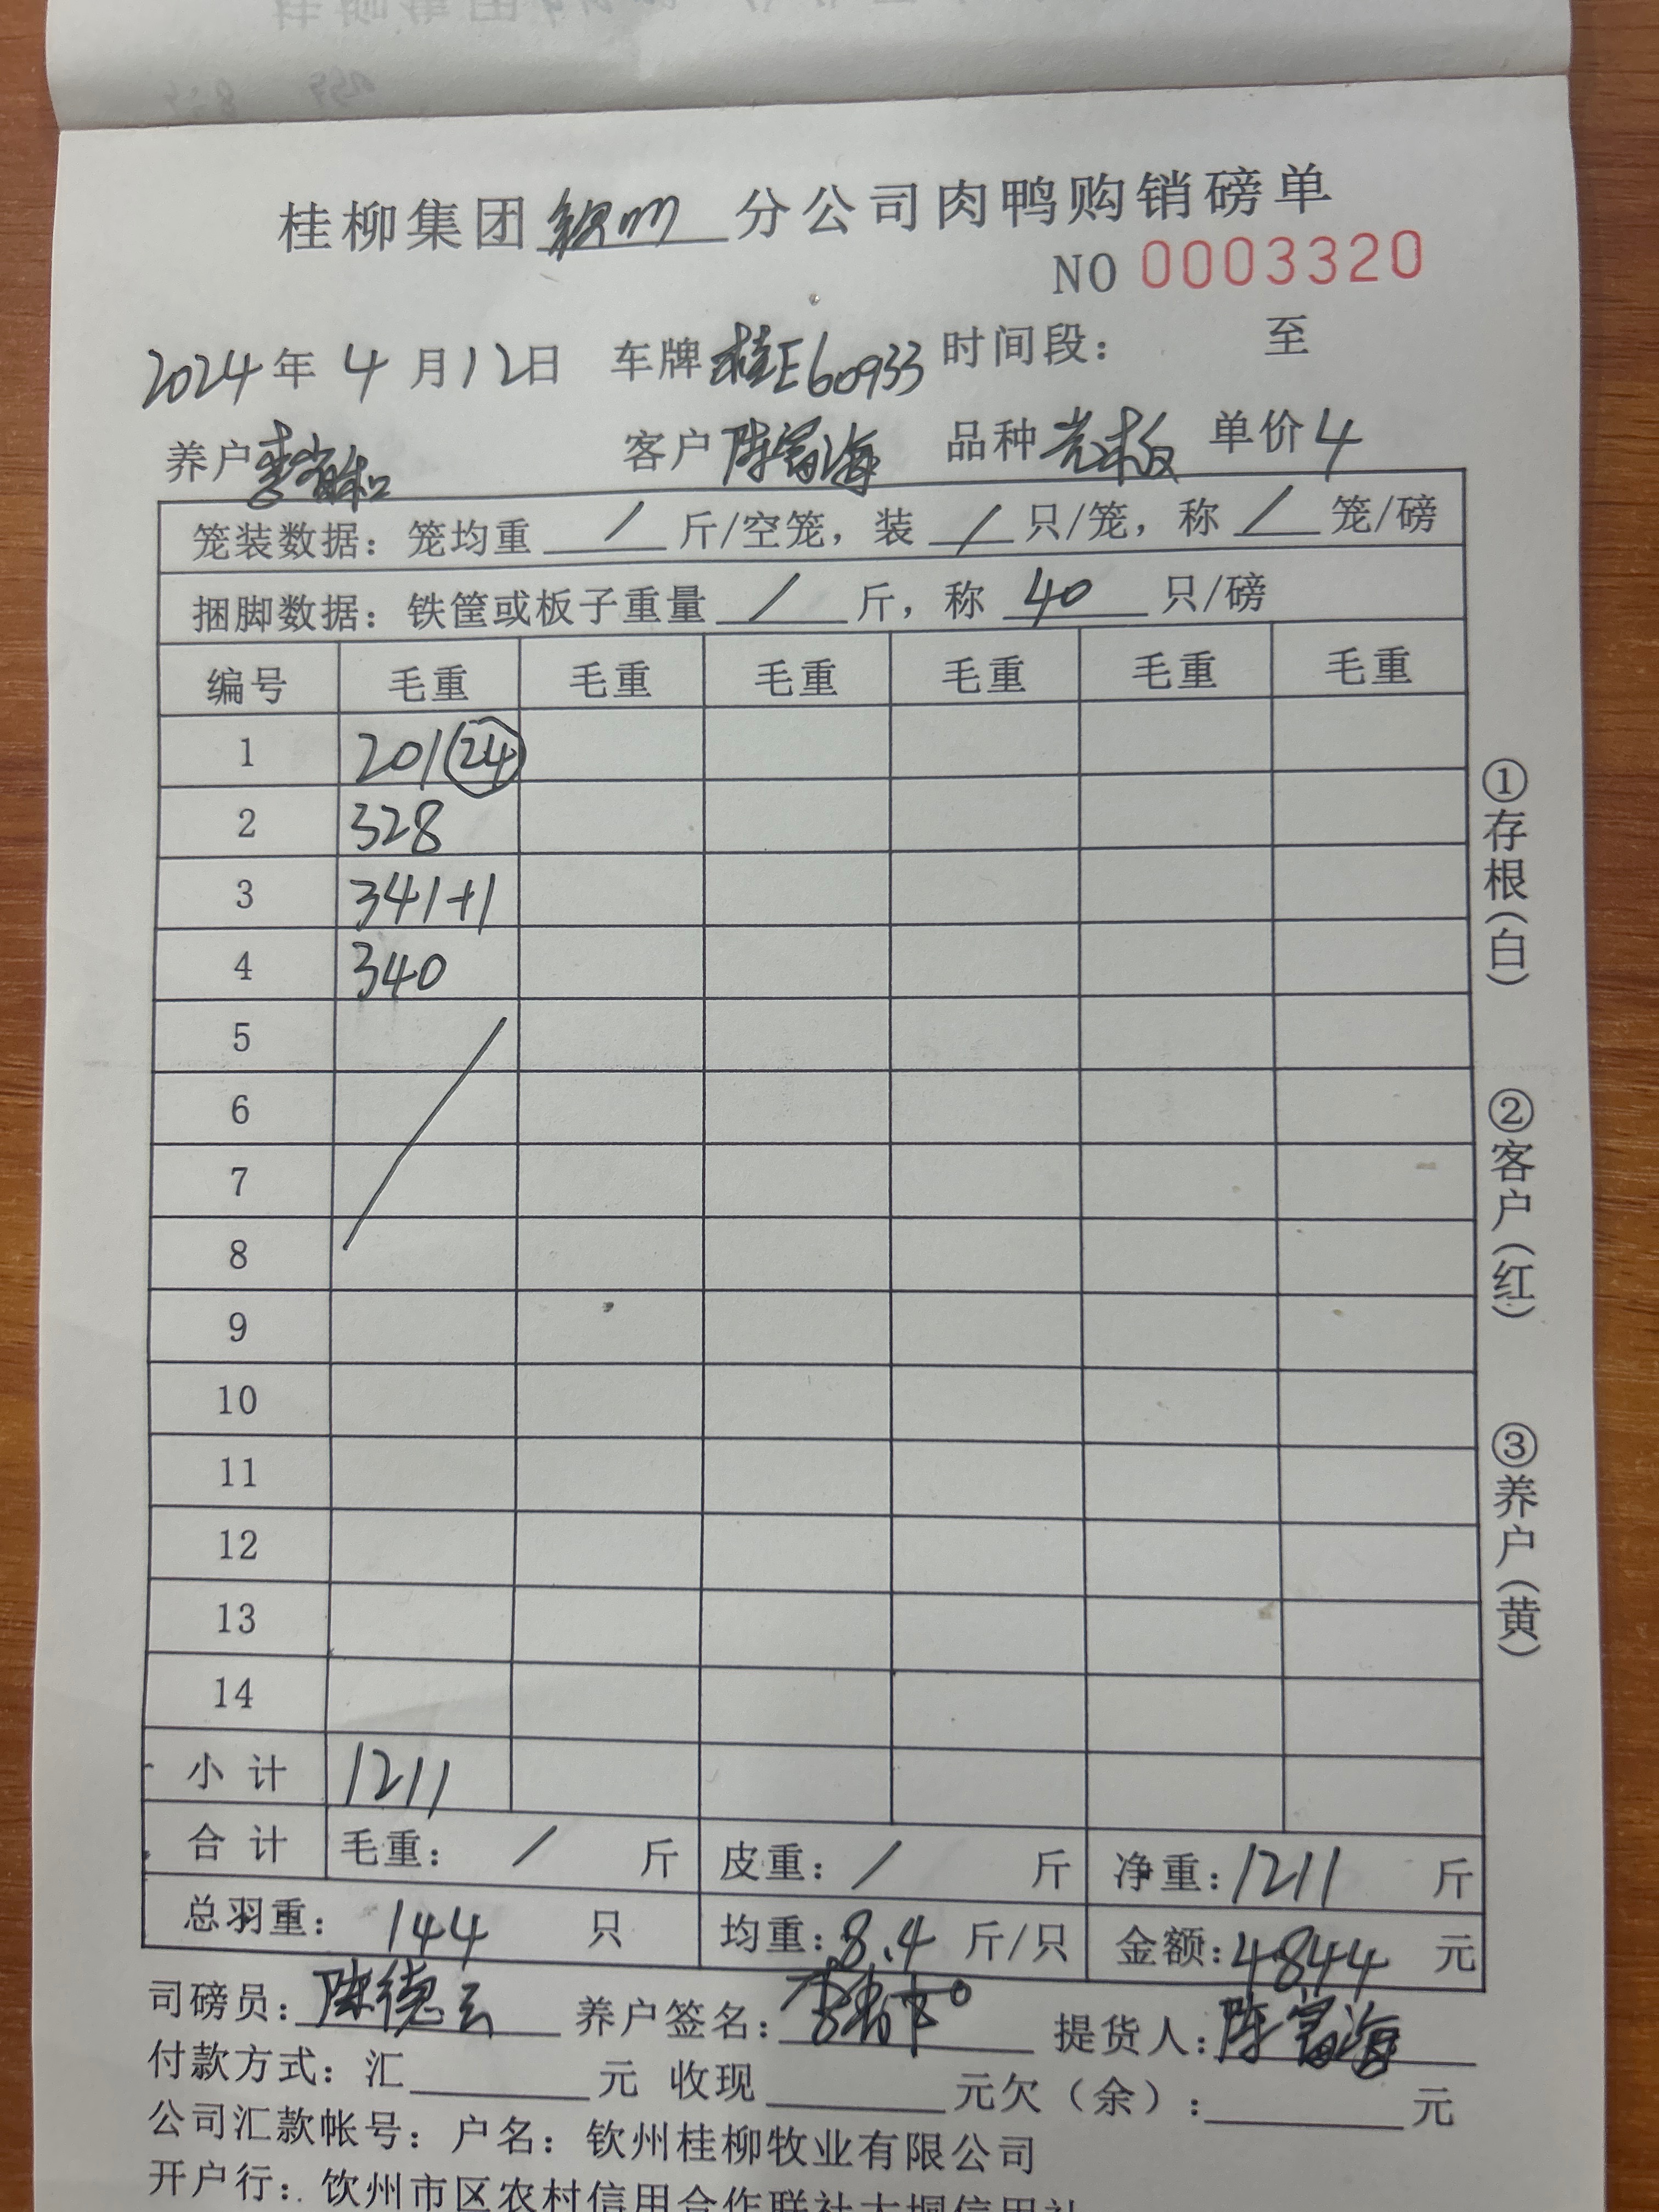 桂柳集团钦州分公司肉鸭购销磅单
NO 0003320
2024年4月12日 车牌桂E60933 时间段： 至
养户 客户陈富海 品种光板 单价4
笼装数据：笼均重 / 斤/空笼，装 / 只/笼，称 / 笼/磅
捆脚数据：铁筐或板子重量 / 斤，称 40 只/磅
编号 毛重 毛重 毛重 毛重 毛重 毛重
1 201(24)
2 328
3 341+1
4 340
5
6
7
8
9
10
11
12
13
14
小计 1211
合计 毛重： / 斤 皮重： / 斤 净重：1211 斤
总羽重： 144 只 均重：8.4 斤/只 金额：4844 元
司磅员：陈德云 养户签名： 提货人：陈富海
付款方式：汇 元 收现 元欠（余）： 元
公司汇款帐号：户名：钦州桂柳牧业有限公司
开户行：钦州市区农村信用合作联社大垌信用社
①存根（白）
②客户（红）
③养户（黄）